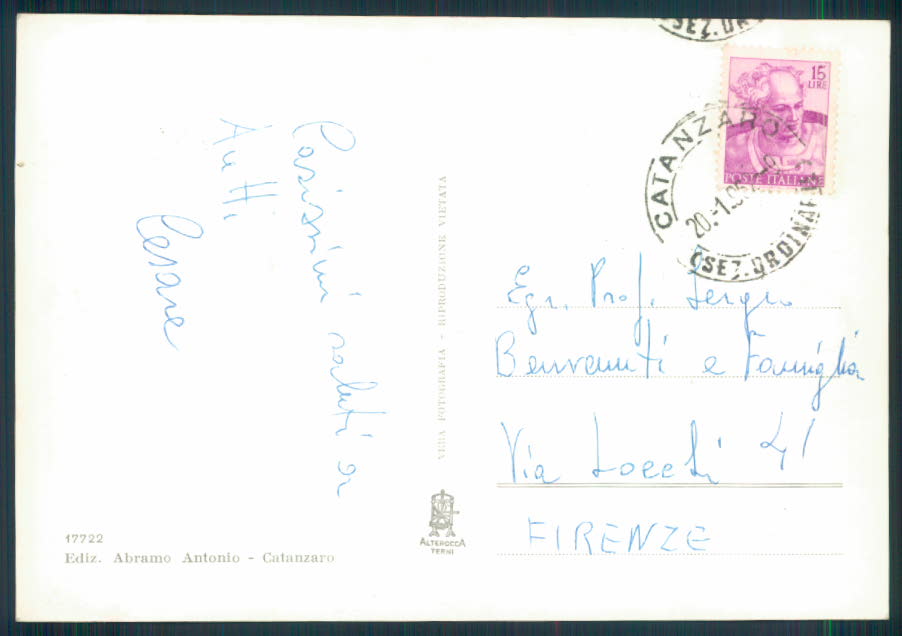 Carissimi saluti a
tutti
Cesare
VERA FOTOGRAFIA - RIPRODUZIONE VIETATA
17722
Ediz. Abramo Antonio - Catanzaro
ALTEROCCA
TERNI
SEZ. OR
15
LIRE
POSTE ITALIANE
CATANZARO
20.-1.96
(SEZ. ORDINARIA
Egr. Prof. Sergio
Benvenuti e Famiglia
Via Locchi 41
FIRENZE